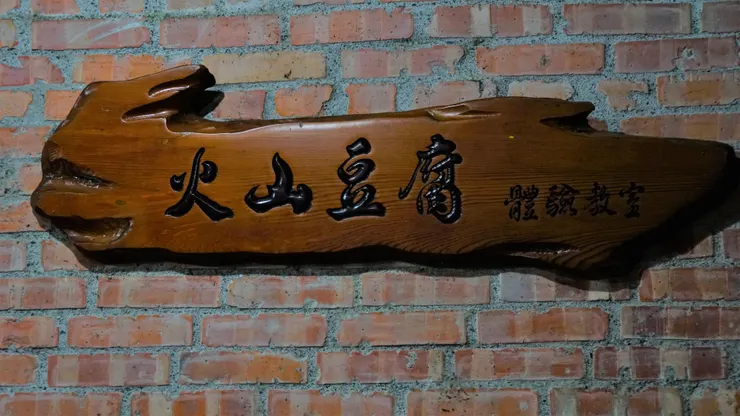 火山豆腐 體驗教室